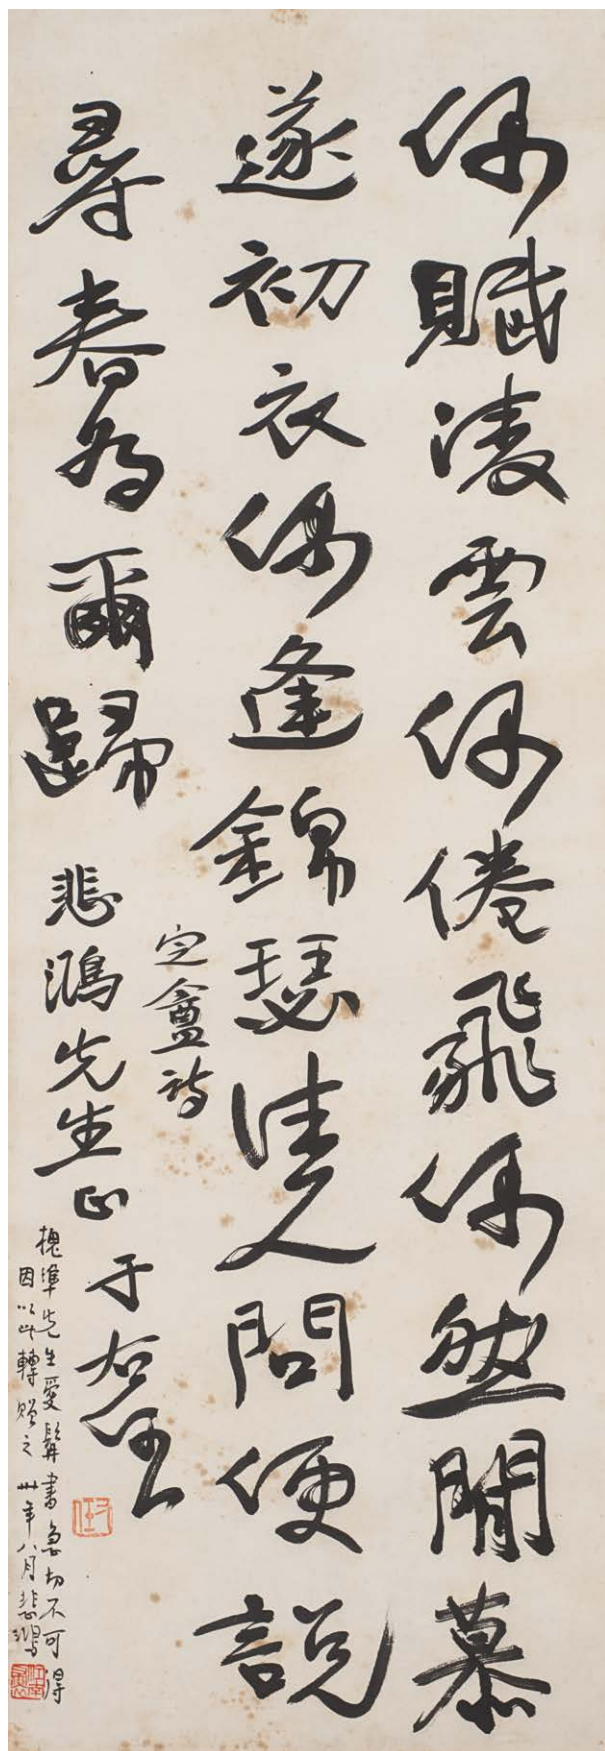 偶賦淩雲偶倦飛偶然閒慕
遂初衣偶逢錦瑟佳人問便說
尋春為爾歸
定盦詩
悲鴻先生正
于右任
槐準先生愛髯書急切不可得
因以此轉贈之 卅年八月悲鴻